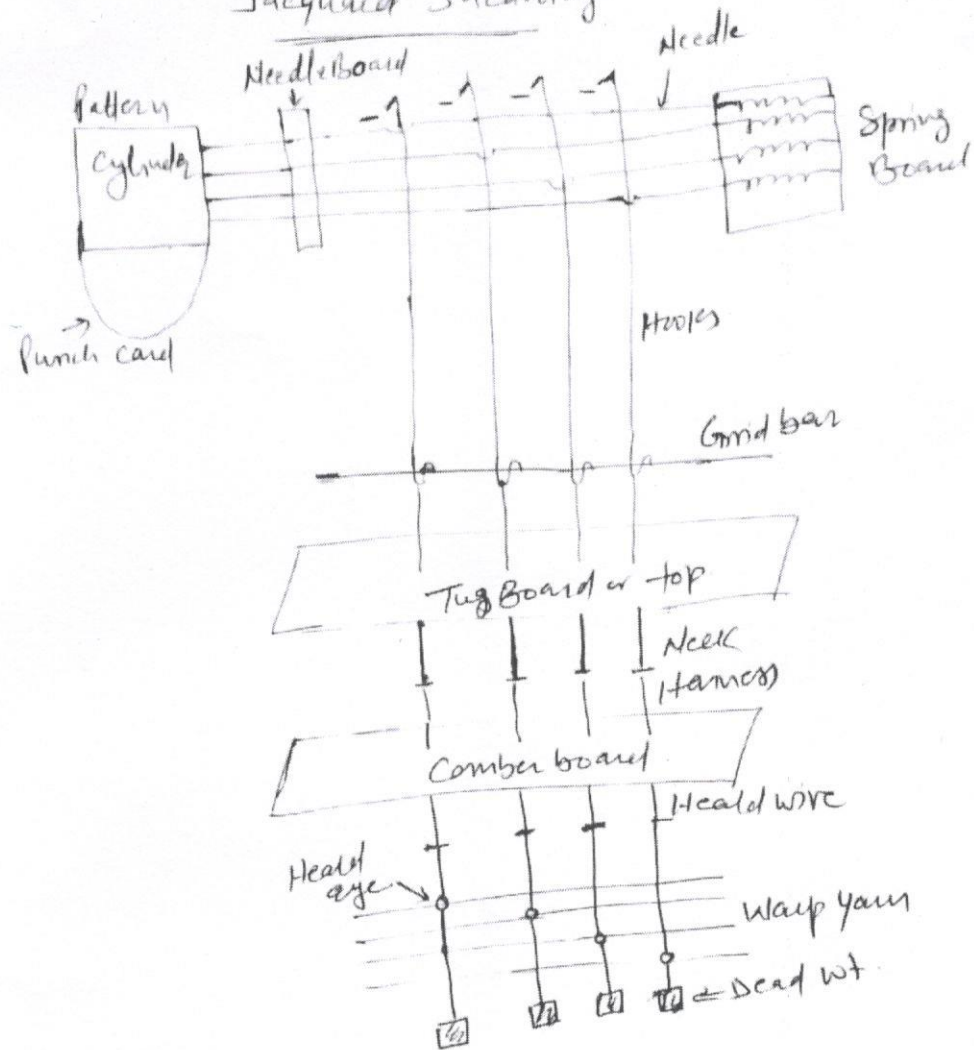 Jacquard Shedding
Needle Board
Needle
Pattern
Cylinder
Spring
Board
Punch card
Hooks
Grid bar
Tug Board or top
Neck
Harness
Comber board
Heald wire
Heald
eye
Warp Yarn
Dead wt